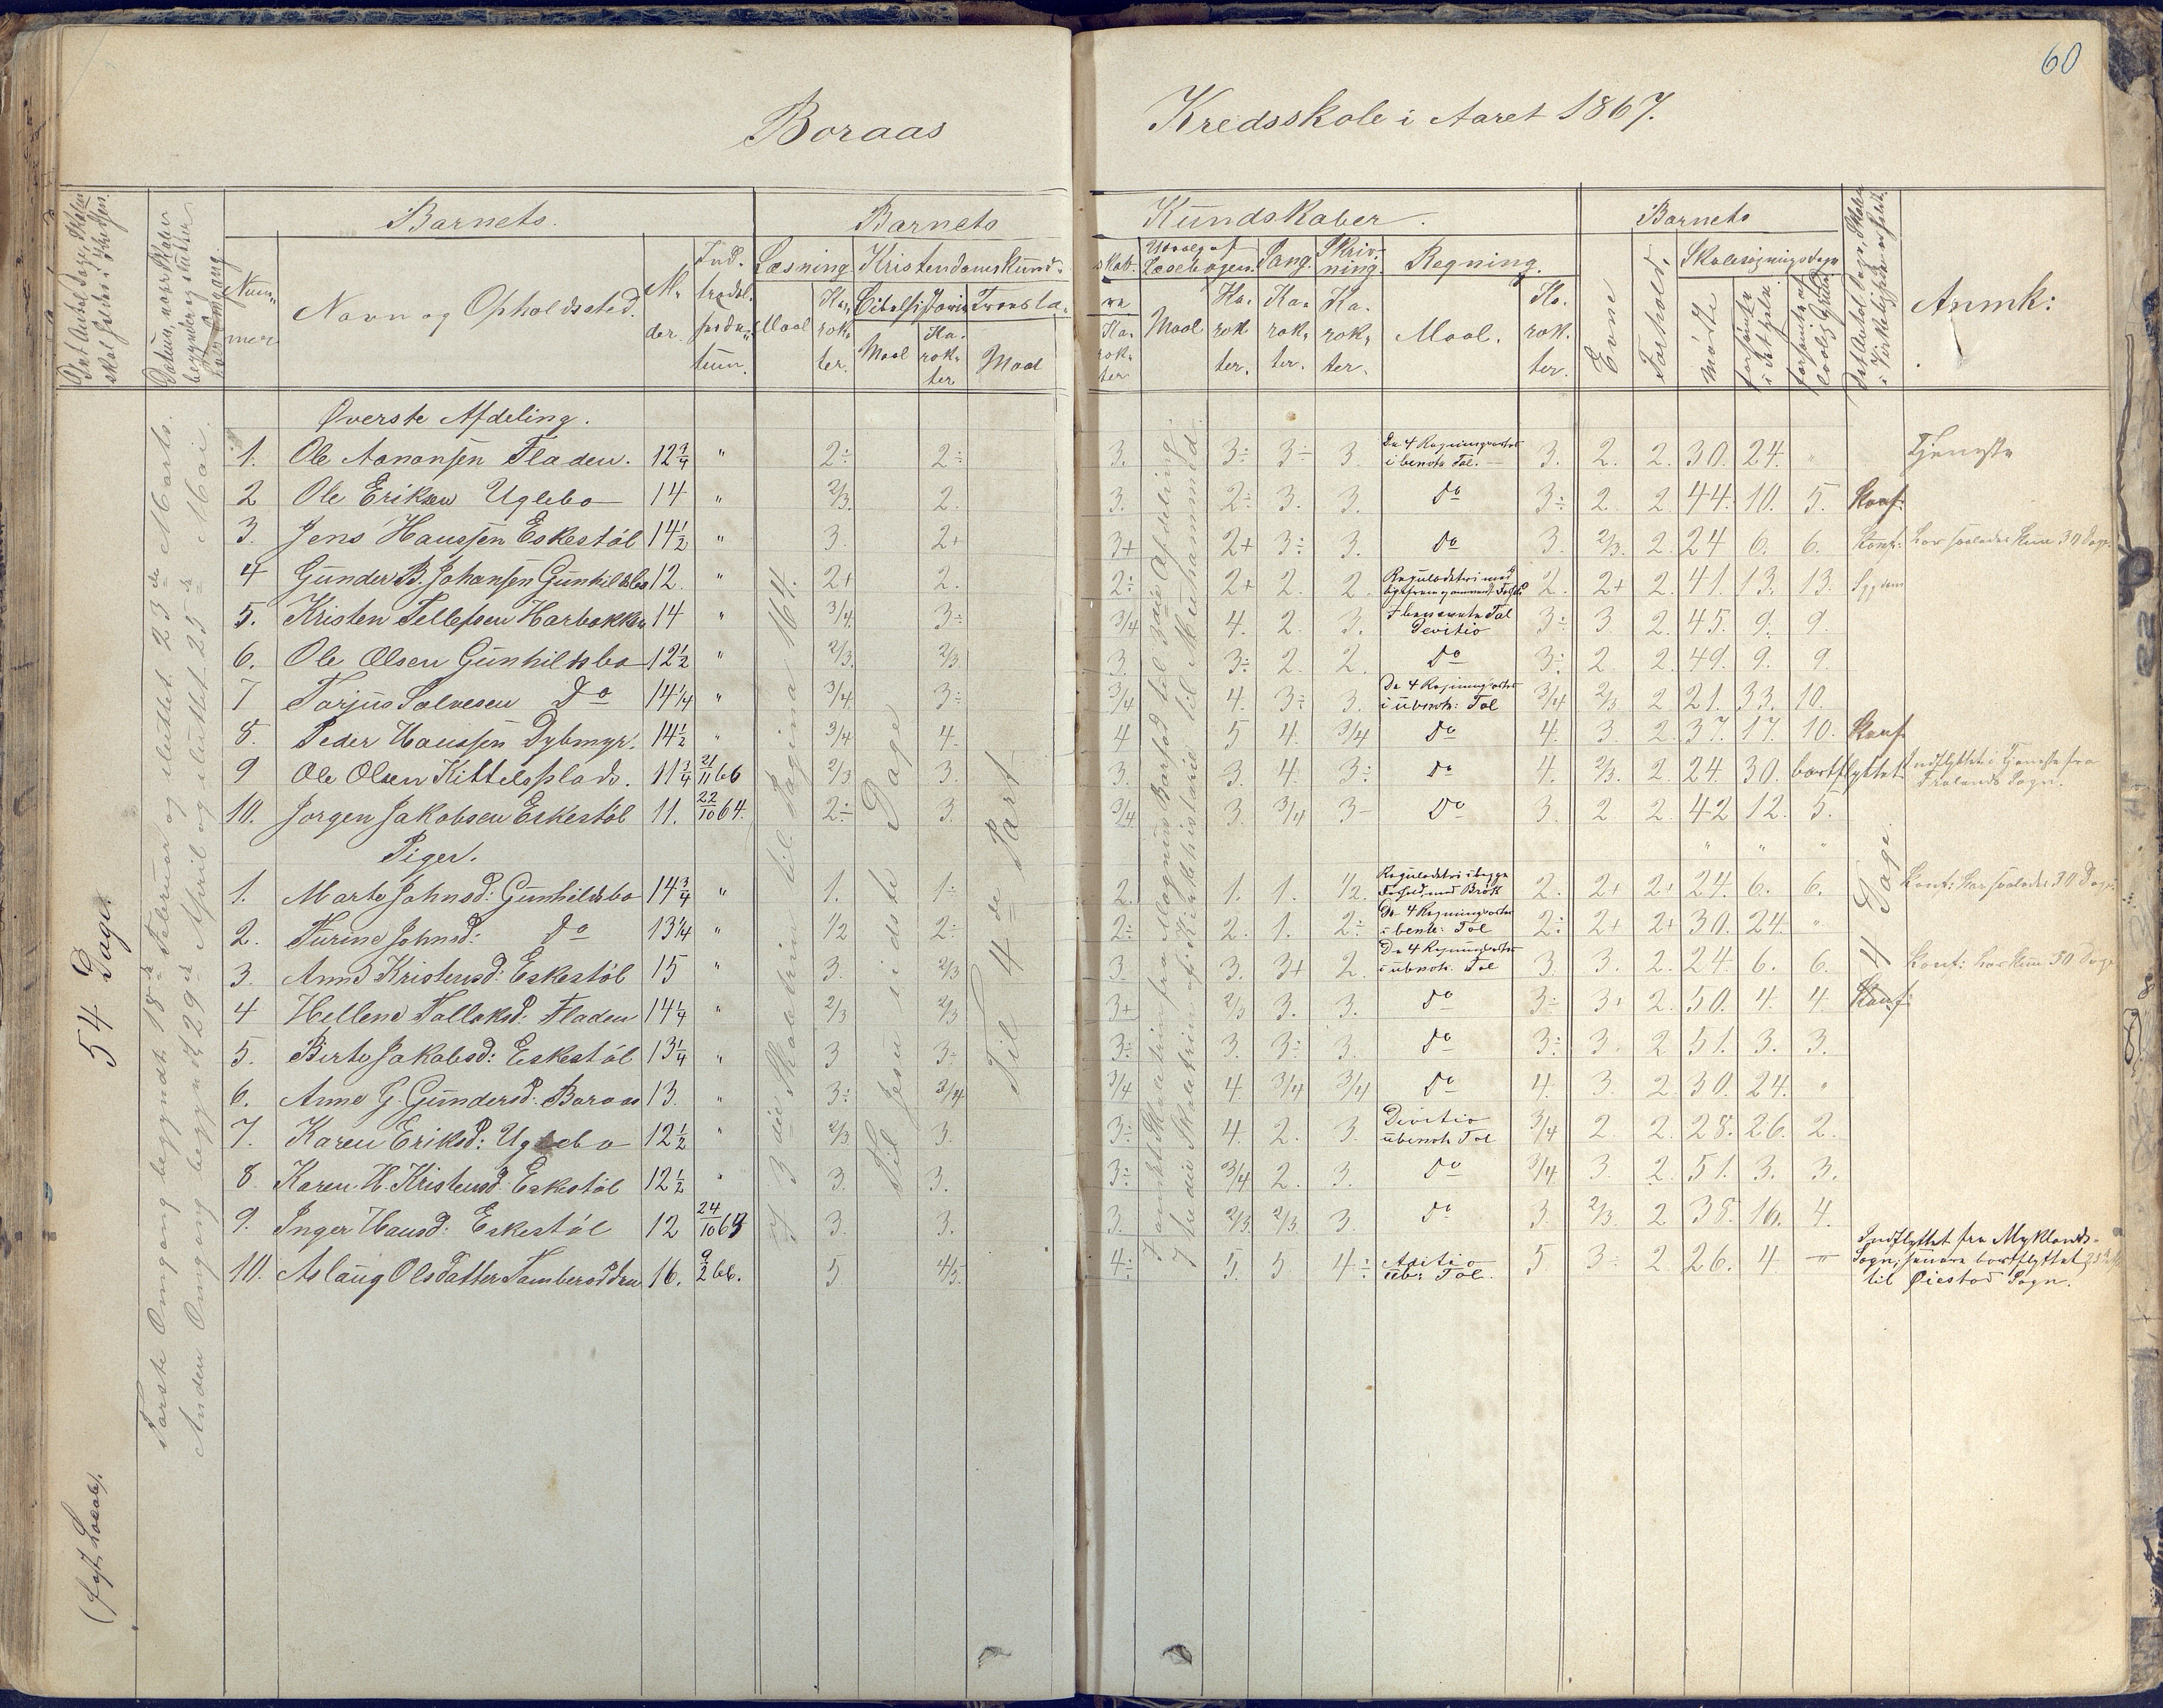 60
Boraas Kredsskole i Aaret 1867.
Det Antal Dage, Skolen skal holdes i Kredsen.
Datum, naar Skolen begynder og slutter hver Omgang.
Barnets
Barnets Kundskaber.
Barnets
Num-mer
Navn og Opholdssted.
Al-der.
Ind-trædel-sesda-tum.
Læsning
Kristendomskund-skab.
Udvalg af Læsebogen.
Sang.
Skriv-ning.
Regning.
Evne
Forhold.
Skolesøgningsdage
Det Antal Dage, Skolen i Virkeligheden er holdt.
Anmk:
Maal
Ka-rak-ter.
Bibelhistorie
Maal
Ka-rak-ter
Troeslæ-re
Maal
Ka-rak-ter
Maal
Ka-rak-ter.
Ka-rak-ter.
Ka-rak-ter.
Maal.
Ka-rak-ter.
mødte
forsømte i det Hele.
forsømte af lovlig Grund
54 Dage.
(fast Locale).
Første Omgang begyndt 18de Februar og sluttet 23de Marts.
Anden Omgang begyndt 29de April og sluttet 25de Mai.
Til Jesu sidste Dage
Til 4de Part
Øverste Afdeling.
1. Ole Aanonsen Fladen. 12¾ " 2÷ 2÷ 3. 3÷ 3÷ 3. De 4 Regningsarter i benevnte Tal. 3. 2. 2. 30. 24. " Tjeneste
2 Ole Eriksen Uglebo 14 " 2/3. 2. 3. 2÷ 3. 3. do 3÷ 2. 2. 44. 10. 5. Konf:
3. Jens Hanssen Eskestøl 14½ " 3. 2+ 3+ 2+ 3÷ 3. do 3. 2/3. 2. 24 6. 6. Konf: har saaledes kun 30 Dage.
4 Gunder B. Johansen Gunhildsbo 12. " 2+ 2. 2÷ 2+ 2. 2. Reguladetri med 2. 2+ 2. 41. 13. 13. Sygdom
5. Kristen Tellefsen Harbakken 14 " 3/4. 3÷ 3/4 4. 2. 3. Tal Devitio 3÷ 3 2. 45. 9. 9.
6. Ole Olsen Gunhildsbo 12½ " 2/3. 2/3. 3. 3÷ 2. 2. do 3÷ 2. 2. 49. 9. 9.
7 Tarjus Salvesen Do 14¼ " 3/4. 3÷ 3/4 4. 3÷ 3. De 4 Regningsarter i übenevn: Tal 3/4 2/3 2 21. 33. 10.
8. Peder Hanssen Dybmyr. 14½ " 3/4 4. 4 5 4. 3/4 do 4. 3. 2. 37. 17. 10. Konf
9 Ole Olsen Kittelsplads. 11¾ 21/11 66 2/3 3. 3. 3. 4. 3÷ do 4. 2/3. 2. 24. 30. bortflyttet Indflyttet i Tjeneste fra Frolands Sogn.
10. Jørgen Jakobsen Eskestøl 11. 22/10 64. 2÷ 3. 3/4. 3. 3/4 3- do 3 2 2. 42 12. 5.
Piger.
1. Marte Johnsd: Gunhildsbo 14¾ " 1. 1÷ 2. 1. 1. 1/2. Reguladetri i begge Forhold med Brøk 2. 2+ 2+ 24. 6. 6. Konf: har saaledes 30 Dage.
2. Turine Johnsd: Do 13¼ " 1/2 2÷ 2÷ 2. 1. 2÷ De 4 Regningsarter i benevn: Tal 2÷ 2+ 2+ 30. 24. "
3. Anne Kristensd: Eskestøl 15 " 3. 2/3 3 3. 3+ 2. De 4 Regningsarter i übenevn. Tal 3. 3. 2. 24. 6. 6. Konf: har kun 30 Dage
4 Hellene Tallaksd. Fladen 14¼ " 2/3 2/3 3+ 2/3 3. 3. do 3÷ 3+ 2. 50. 4. 4 Konf:
5. Birte Jakobsd: Eskestøl 13¼ " 3 3÷ 3÷ 3. 3÷ 3. do 3÷ 3. 2 51. 3. 3.
6. Anne G. Gundersd: Boraas 13. " 3÷ 3/4 3/4 4. 3/4 3/4 do 4. 3. 2. 30. 24. "
7. Karen Eriksd: Uglebo 12½ " 2/3 3. 3÷ 4. 2. 3. Devitio übenevn. Tal 3/4 2. 2. 28. 26. 2.
8. Karen H. Kristensd: Eskestøl 12½ " 3. 3. 3÷ 3/4 2. 3. do 3/4 3. 2. 51. 3. 3.
9. Inger Hansd: Eskestøl 12 24/10 63 3. 3. 3. 2/3. 2/3. 3. do 3. 2/3. 2. 38. 16. 4.
10. Aslaug Olsdatter 16. 9/2 66. 5. 4/5. 4÷ 5. 5 4÷ Aditio Tal. 5 3- 2. 26. 4 "
Indflyttet fra Myklands-Sogn; senere bortflyttet til Øiestad Sogn.